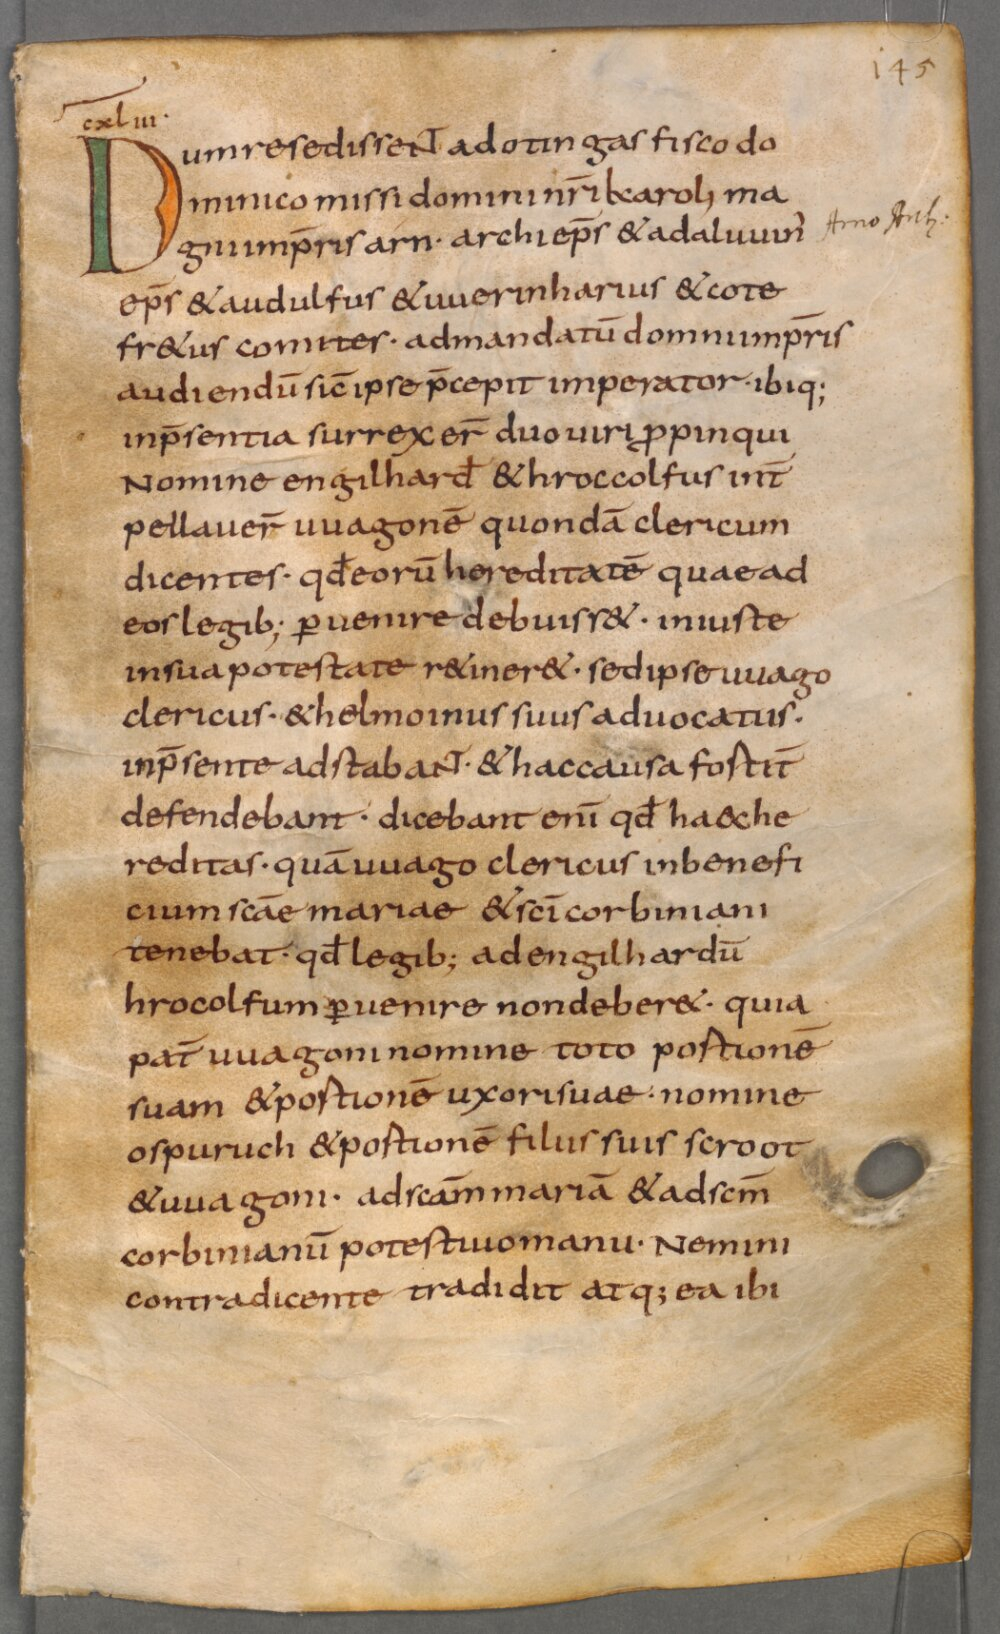 145
cxliii·
Dum resedissent ad otingas fisco do
minico missi domini nr̄i karoli ma
gni imp̄ris arn· archiep̄s & adaluuin̄
Arno Arch.
ep̄s & audulfus & uuerinharius & cote
fr&us comites· ad mandatū domni imp̄ris
audiendū sic̄ ipse p̄cepit imperator· ibiq;
in p̄sentia surrexer̄ duo uiri ꝓpinqui
Nomine engilhard̄ & hroccolfus int̄
pellauer̄ uuagonē quondā clericum
dicentes· qd̄ eorū hereditatē quae ad
eos legib; ꝑuenire debuiss&· iniuste
in sua potestate r&iner&· sed ipse uuago
clericus· & helmoinus suus aduocatus·
in p̄sente adstabant· & hac causa fortit̄
defendebant· dicebant eni̅ qd̄ haec he
reditas· quā uuago clericus in benefi
cium sc̄ae mariae & sc̄i corbiniani
tenebat· qd̄ legib; ad engilhardū
hrocolfum ꝑuenire non deber&· quia
pat̄ uuagoni nomine toto portionē
suam & portionē uxori suae· nomine
ospuruch & portionē filiis suis scroot
& uuagoni· ad sc̄am mariā & ad sc̄m
corbinianū potestiuo manu· Nemini
contradicente tradidit atq; ea ibi